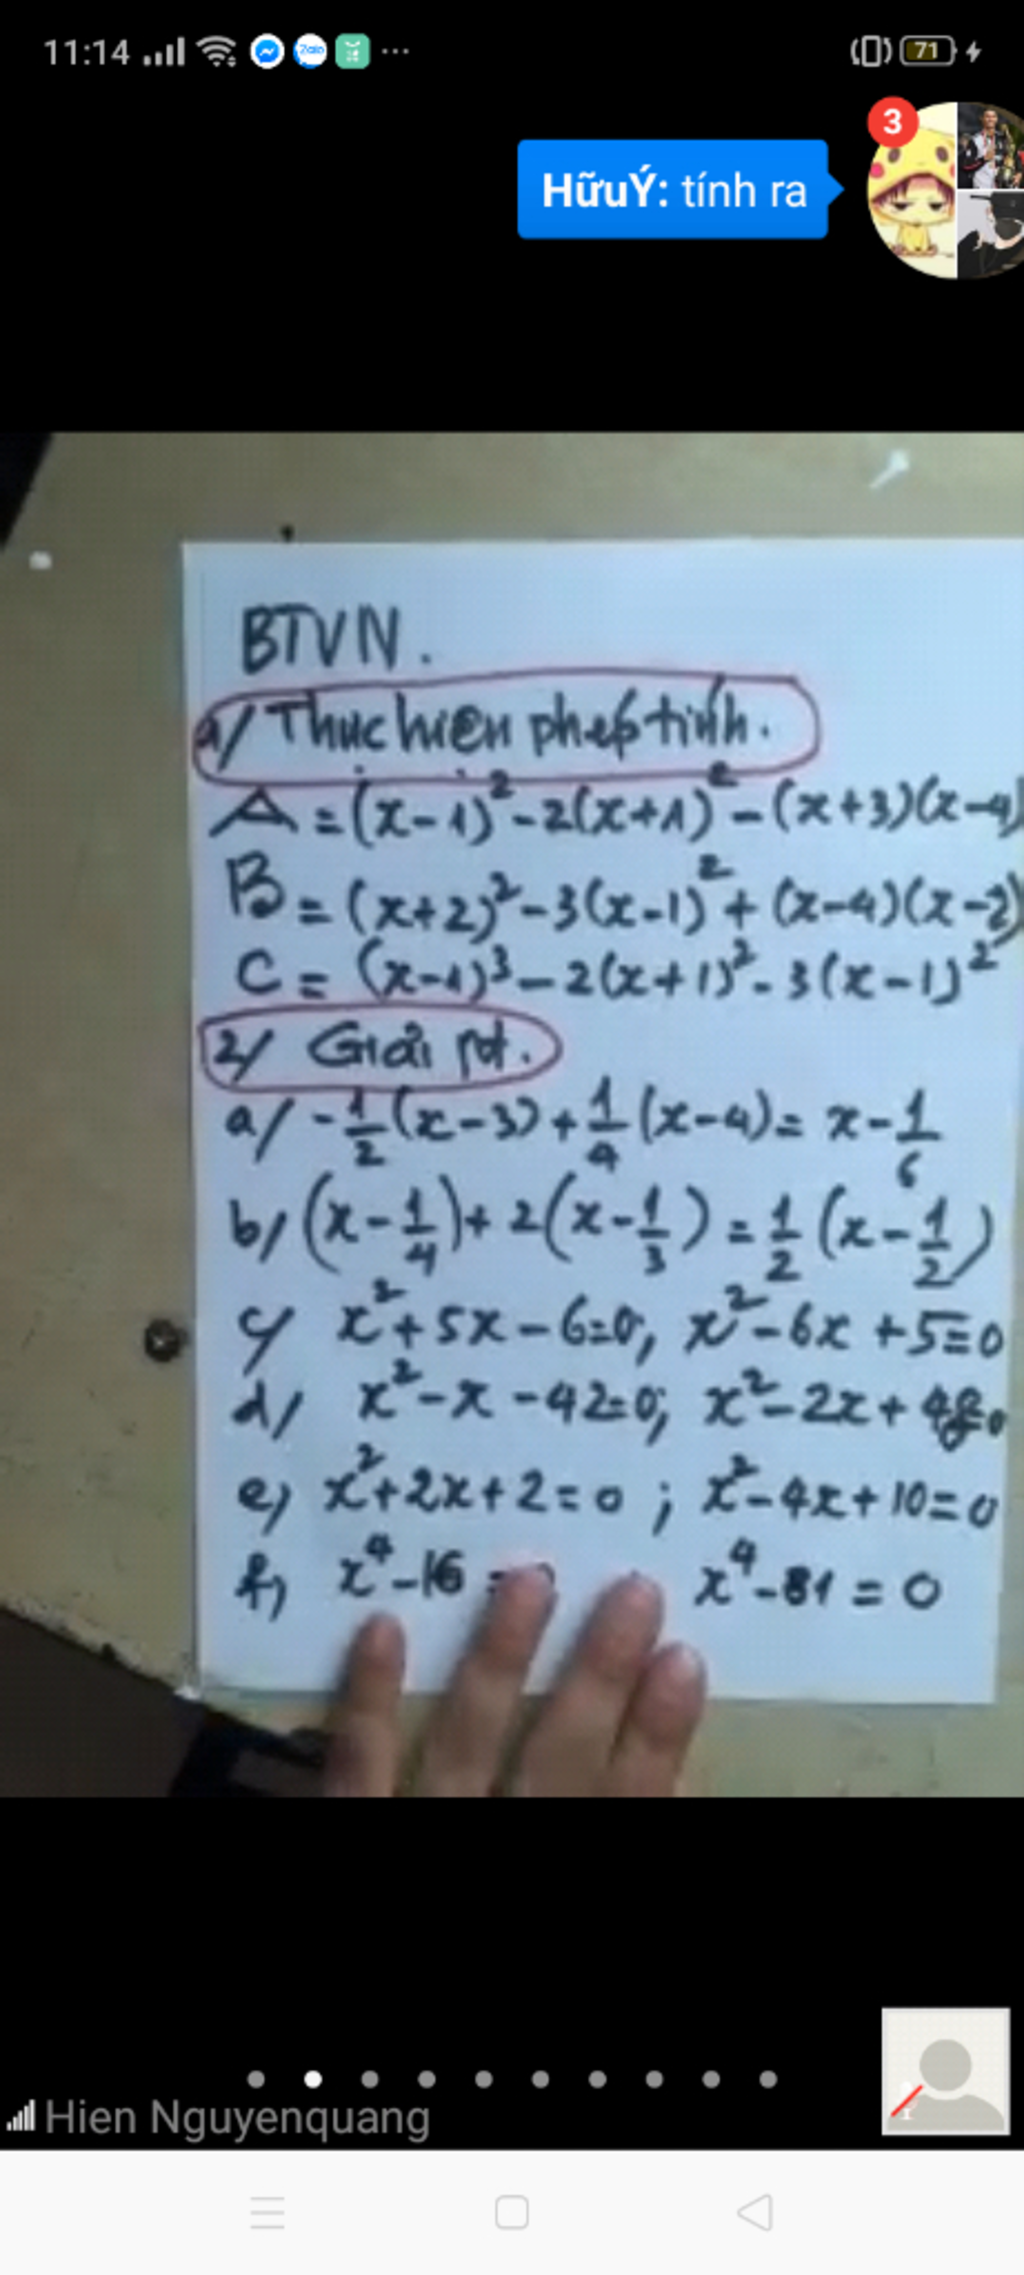 11:14
71
3
HữuÝ: tính ra
BTVN.
a/ Thực hiện phép tính.
A = (x-1)² - 2(x+1)² - (x+3)(x-4)
B = (x+2)² - 3(x-1)² + (x-4)(x-2)
C = (x-1)³ - 2(x+1)² - 3(x-1)²
2/ Giải pt.
a/ -1/2(x-3) + 1/4(x-4) = x - 1/6
b/ (x - 1/4) + 2(x - 1/3) = 1/2(x - 1/2)
c/ x² + 5x - 6 = 0; x² - 6x + 5 = 0
d/ x² - x - 42 = 0; x² - 2x +
e) x² + 2x + 2 = 0; x² - 4x + 10 = 0
f) x⁴ - 16 = x⁴ - 81 = 0
Hien Nguyenquang